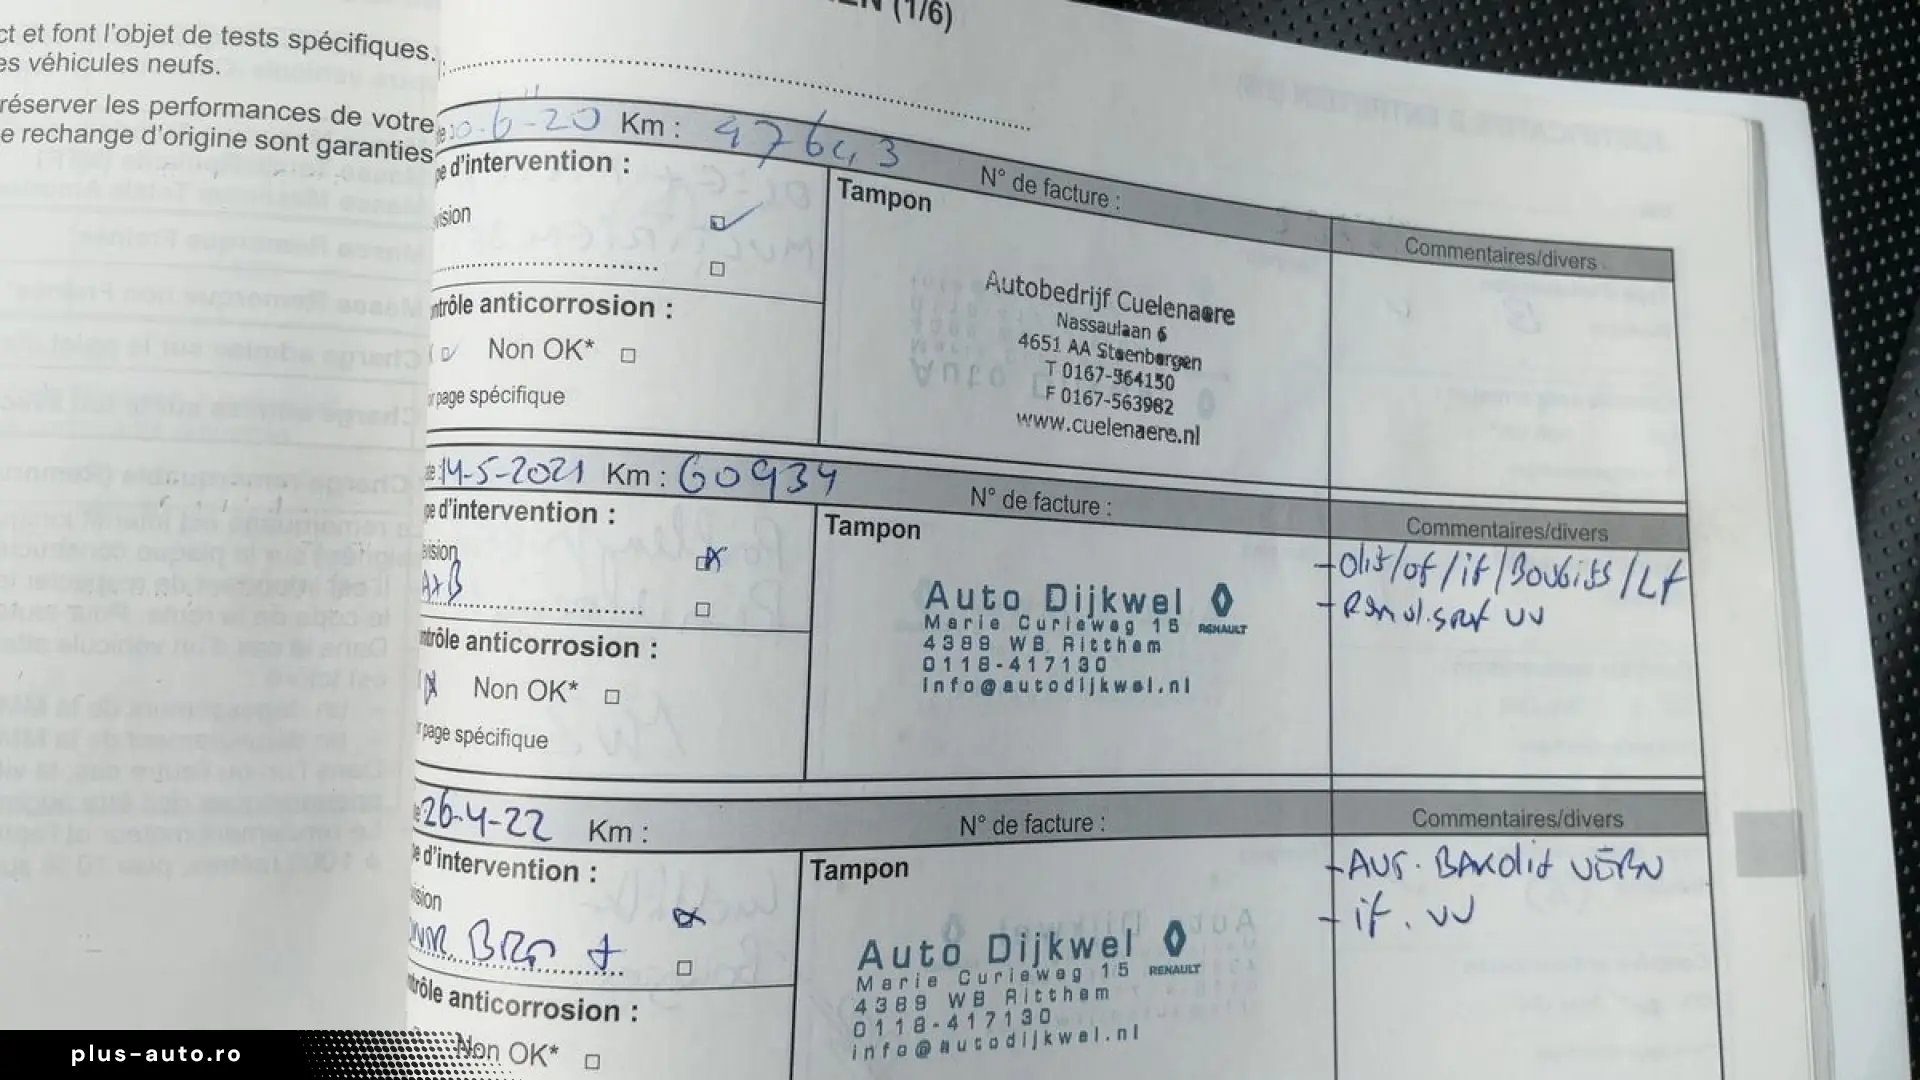 ct et font l'objet de tests spécifiques.
es véhicules neufs.
réserver les performances de votre
e rechange d'origine sont garanties
EN (1/6)
6-20 Km : 47643
N° de facture :
Commentaires/divers
pe d'intervention :
vision
Tampon
Autobedrijf Cuelenaere
Nassaulaan 6
4651 AA Steenbergen
T 0167-564150
F 0167-563982
www.cuelenaere.nl
ntrôle anticorrosion :
Non OK*
r page spécifique
14-5-2021 Km : 60934
N° de facture :
Commentaires/divers
pe d'intervention :
vision
A+B
Tampon
Auto Dijkwel
Marie Curieweg 15
RENAULT
4389 WB Ritthem
0118-417130
info@autodijkwel.nl
-olif/of/if/Bougies/LF
- Remvl. vv
ntrôle anticorrosion :
Non OK*
r page spécifique
26-4-22 Km :
N° de facture :
Commentaires/divers
e d'intervention :
vision
Tampon
Auto Dijkwel
Marie Curieweg 15
RENAULT
4389 WB Ritthem
0118-417130
info@autodijkwel.nl
- AUT. BAKolie VERN
- if. vv
trôle anticorrosion :
Non OK*
plus-auto.ro